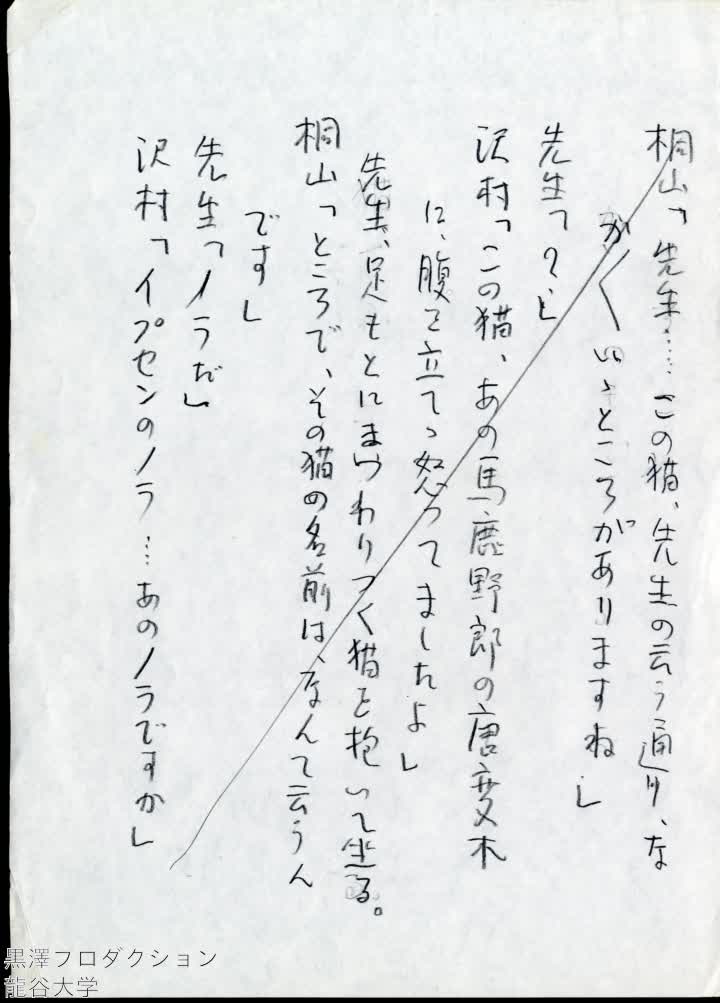 桐山「先生……この猫、先生の云う通り、な
か〱いゝところがありますね」
先生「？」
沢村「この猫、あの馬鹿野郎の唐変木
に、腹を立てゝ怒ってましたよ」
先生、足もとにまつわりつく猫を抱いて坐る。
桐山「ところで、その猫の名前は、なんて云うん
です」
先生「ノラだ」
沢村「イプセンのノラ…あのノラですか」
黒澤プロダクション
龍谷大学